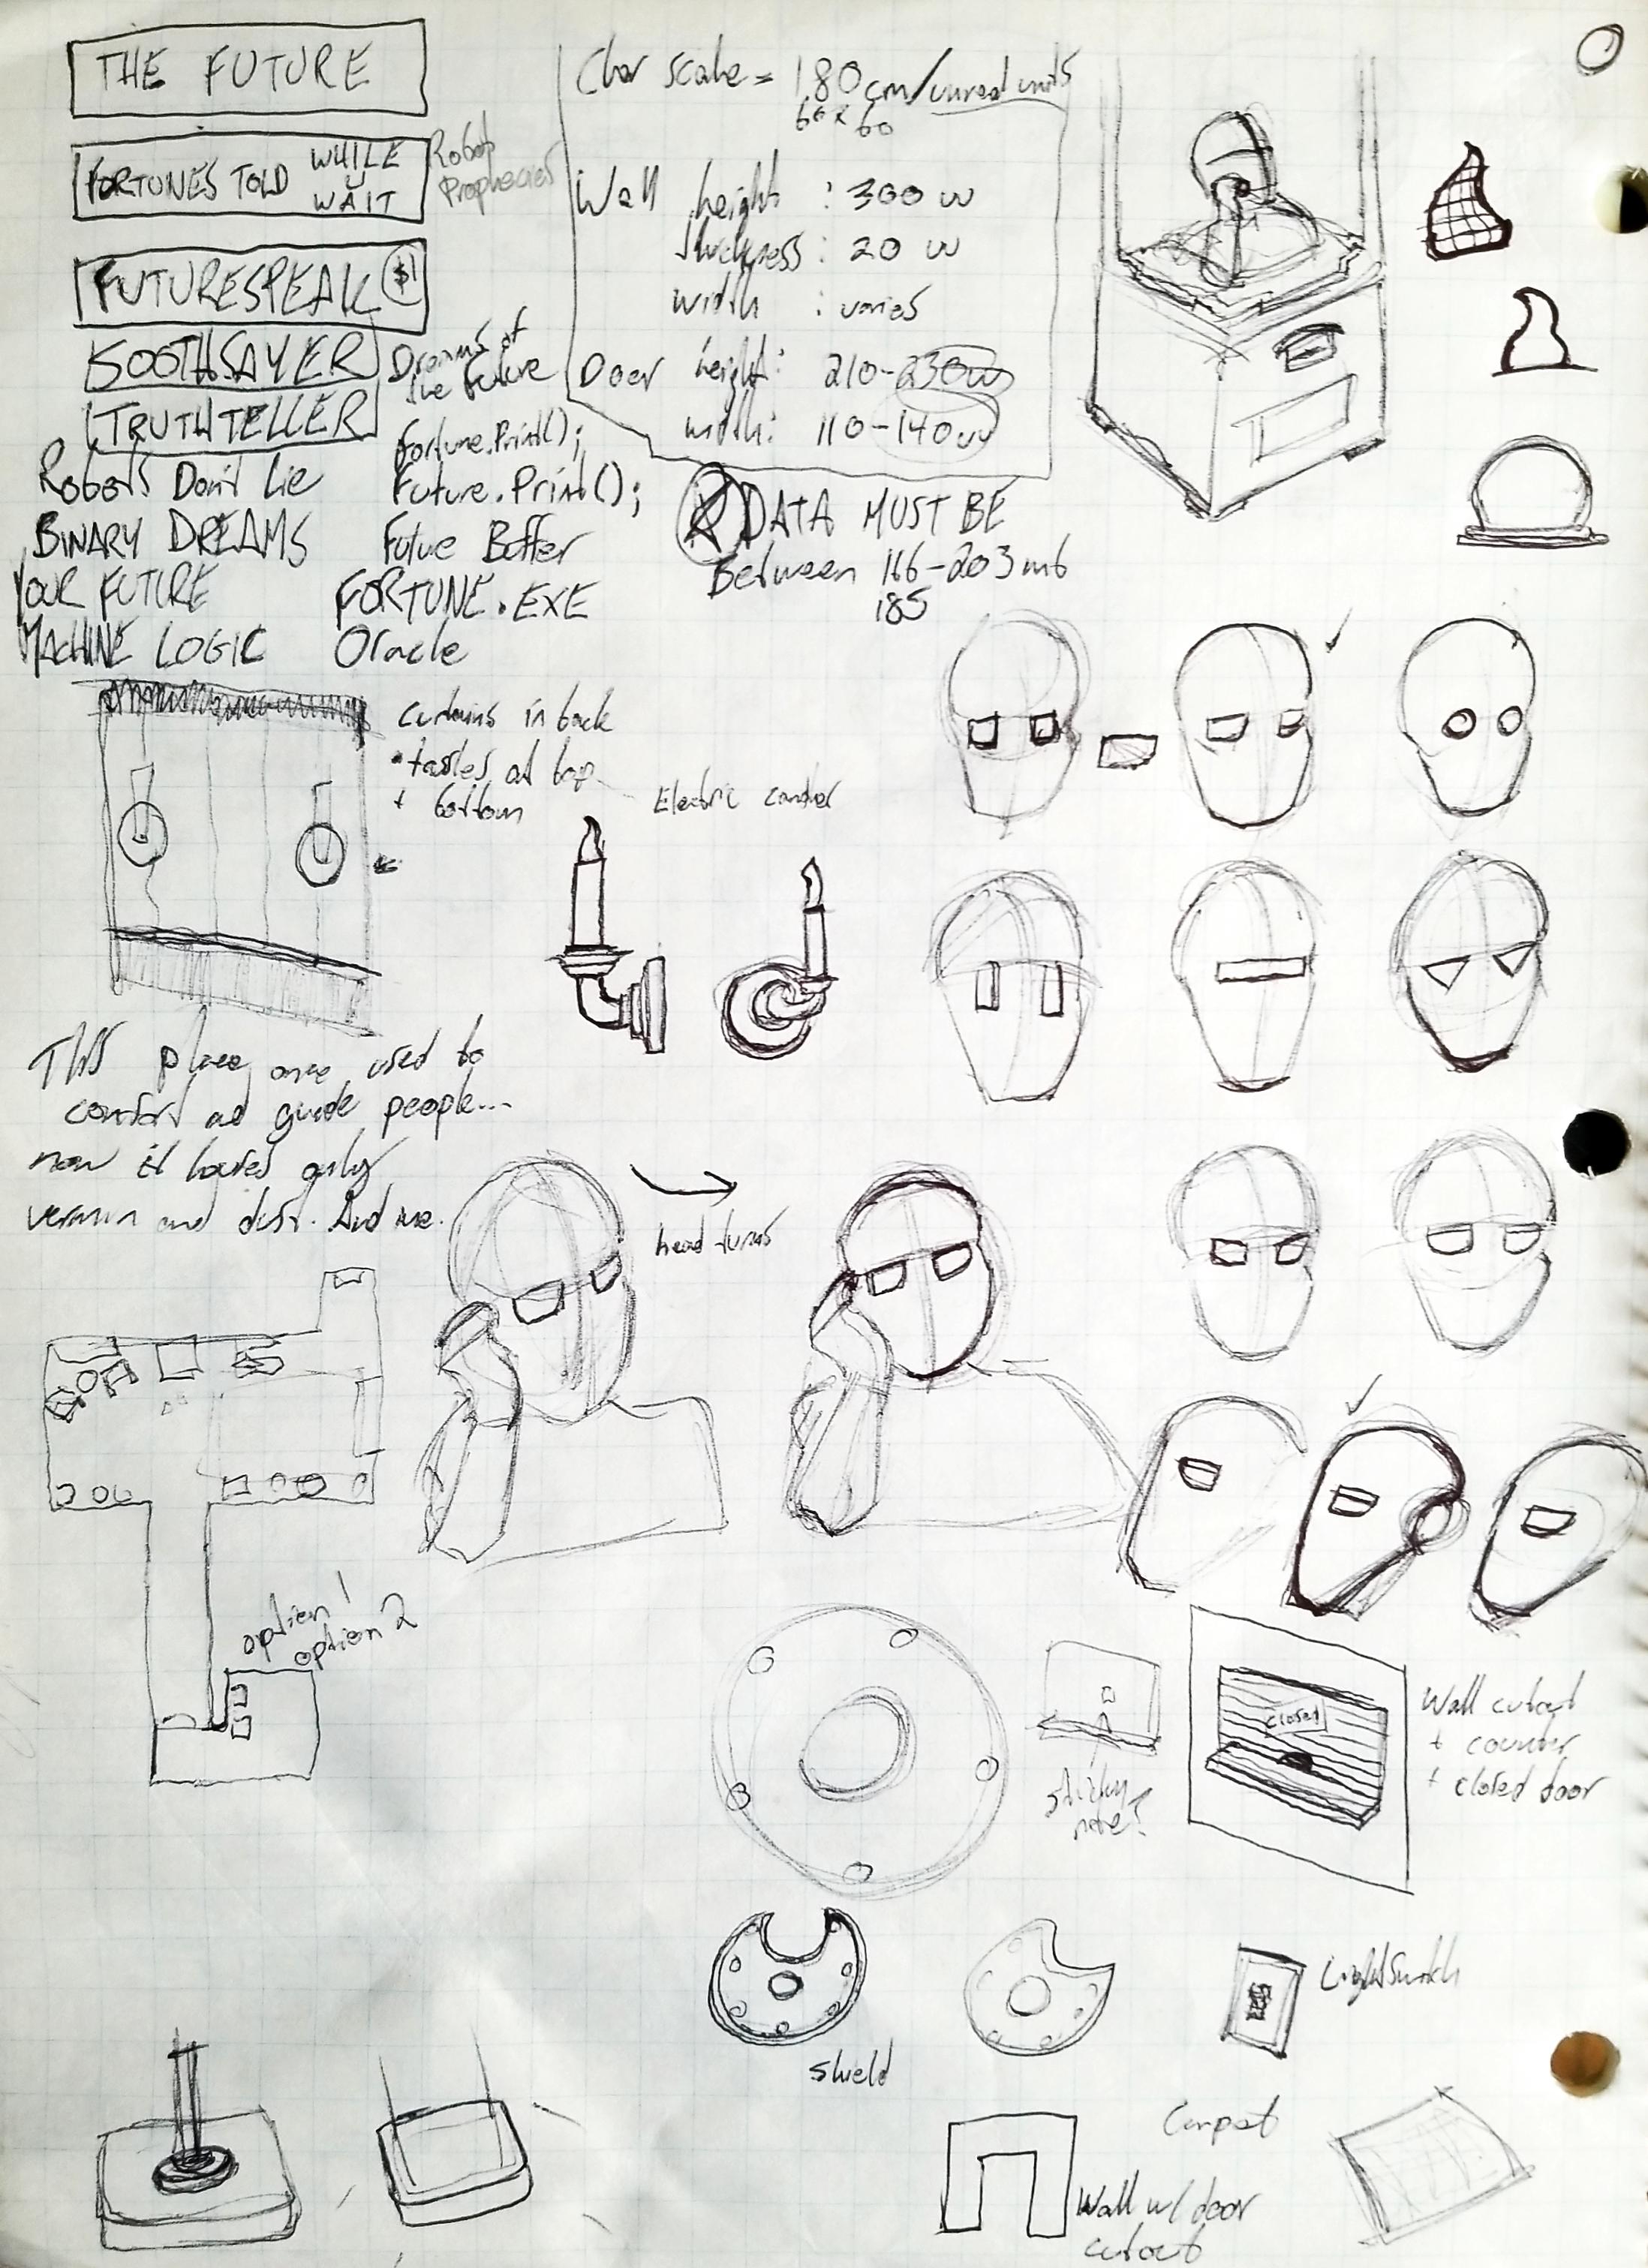 THE FUTURE
FORTUNES TOLD WHILE
U
WAIT
Robot
Prophecies
FUTURESPEAK $1
SOOTHSAYER
TRUTHTELLER
Dreams of
the Future
Robots Don't Lie
BINARY DREAMS
YOUR FUTURE
MACHINE LOGIC
Fortune.Print();
Future.Print();
Future Buffer
FORTUNE.EXE
Oracle
Char scale = 180 cm/unreal units
60 x 60
Wall height : 300 uu
thickness : 20 uu
width : varies
Door height: 210-230uu
width: 110-140uu
DATA MUST BE
Between 166-203mb
185
curtains in back
• tassles at top
+ bottom
Electric candles
This place once used to
comfort and guide people...
now it houses only
vermin and dust. And me.
head turns
option 1
option 2
sticky
note?
closed
Wall cutout
+ counter
+ closed door
shield
LightSwitch
Carpet
Wall w/ door
cutout